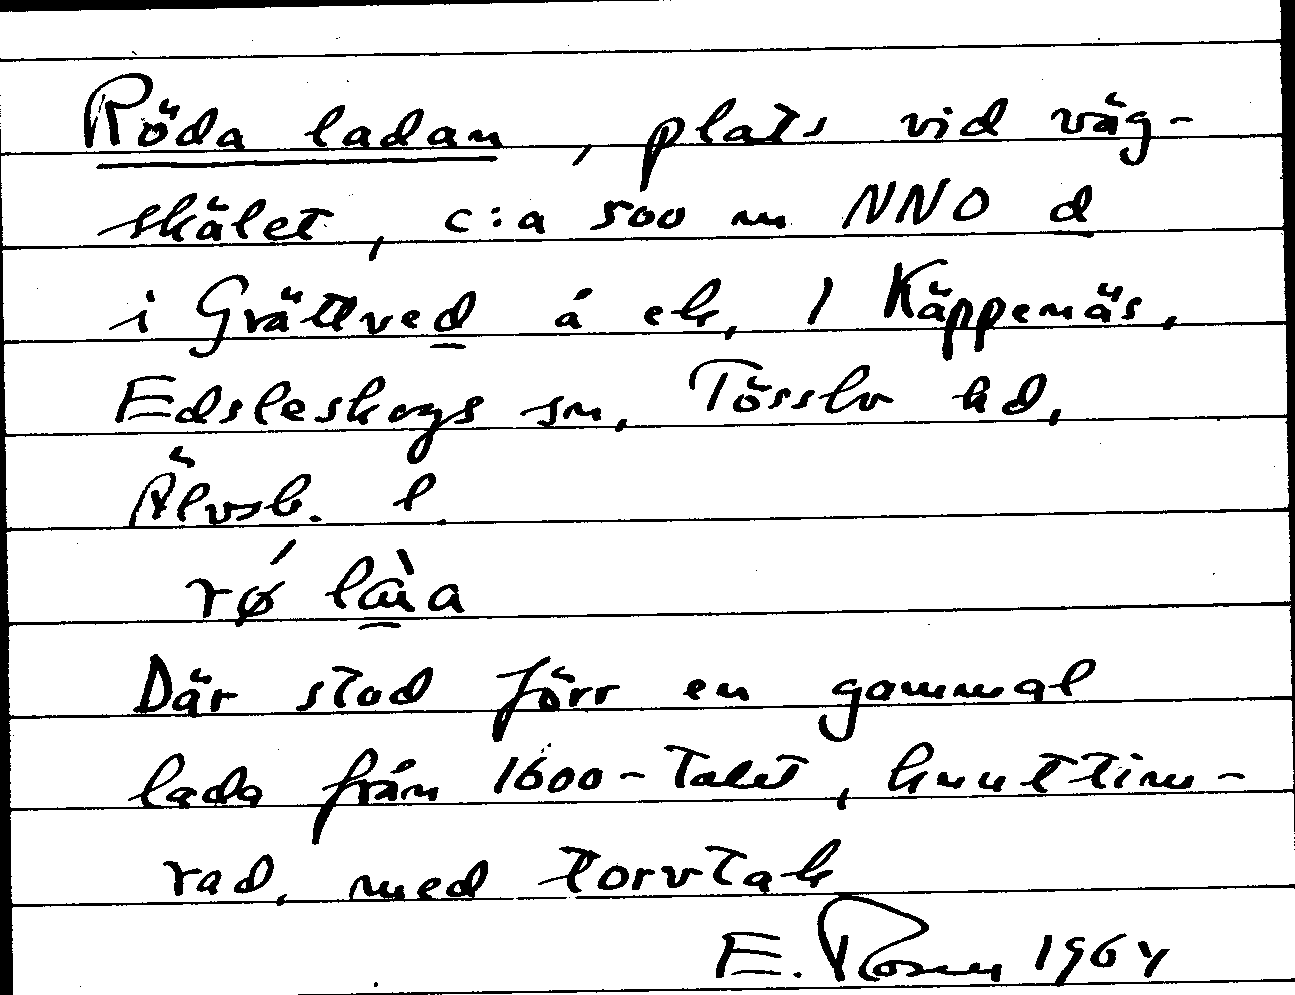 Röda ladan, plats vid väg-
skälet, c:a 500 m NNO d
i Grättved å ek. 1 Käppenäs,
Edsleskogs sn, Tössbo hd,
Älvsb. l.
rǿ là̱a
Där stod förr en gammal
lada från 1600-talet, knuttim-
rad, med torvtak
E. 1964